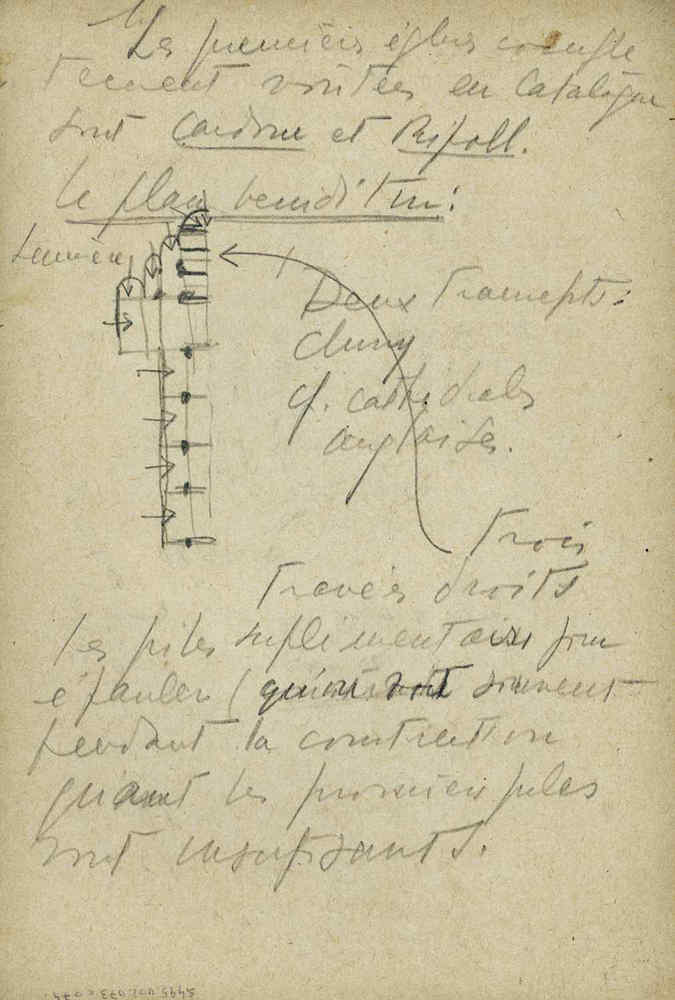 Les premières églises complè
tement voûtées en Catalogne
sont Cardone et Ripoll.
le plan bénédictin:
Lumière
Deux Transepts:
Cluny
cf. cathédrales
anglaises.
Trois
travées droits
les piles suplimentaires pour
épauler ( qu'on voit souvent
pendant la construction
quant les premiers piles
sont insufisants.